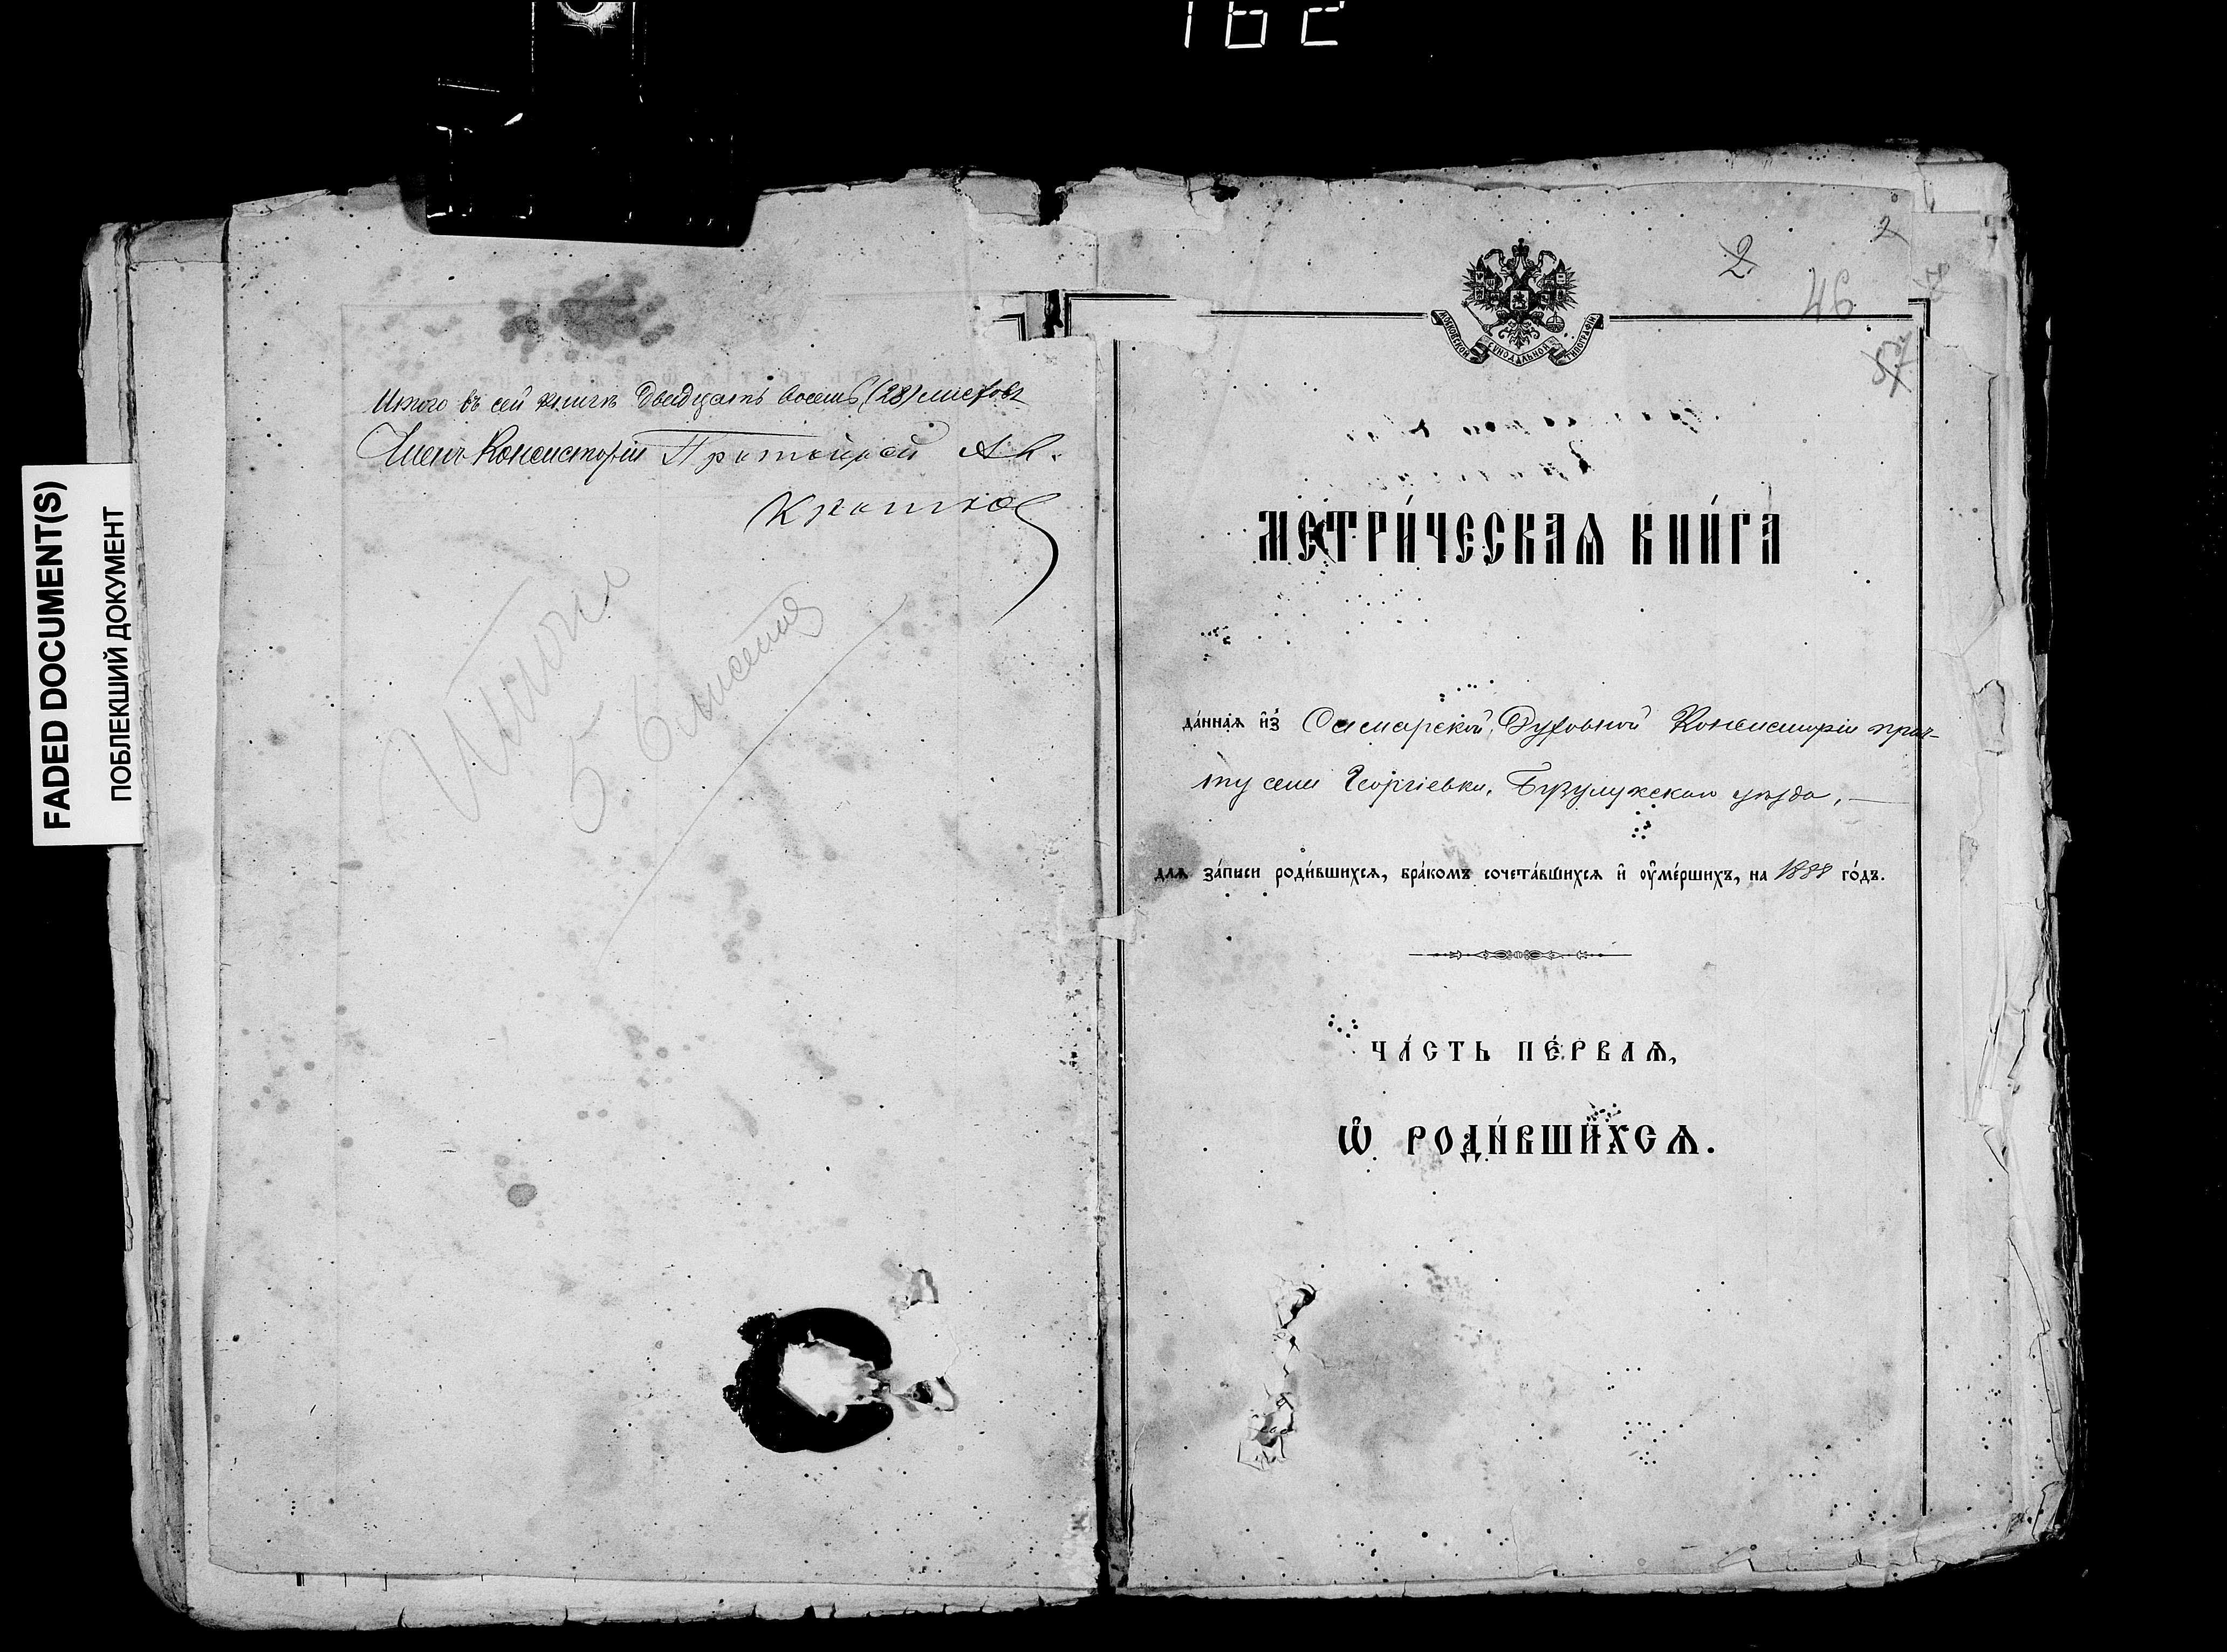 162
FADED DOCUMENT(S)
ПОБЛЕКШИЙ ДОКУМЕНТ
Итого въ сей книгѣ двадцать восемь (28) листовъ
Членъ Консисторіи Протоіерей А. К.
Итого
56 листов
2
2
46
МОСКОВСКОЙ СИНОДАЛЬНОЙ ТИПОГРАФІИ
МЕТРИ́ЧЕСКАѦ КНИ́ГА
да́ннаѧ и҆з̾ Самарской Духовной Консисторіи прич-
ту села Георгіевки, Бузулукскаго уѣзда,
для за́писи роди́вшихсѧ, бра́комъ сочета́вшихсѧ и҆ ᲂу҆ме́ршихъ, на 1888 го́дъ.
ЧА́СТЬ ПЕ́РВАѦ,
Ѡ҆ РОДИ́ВШИХСѦ.